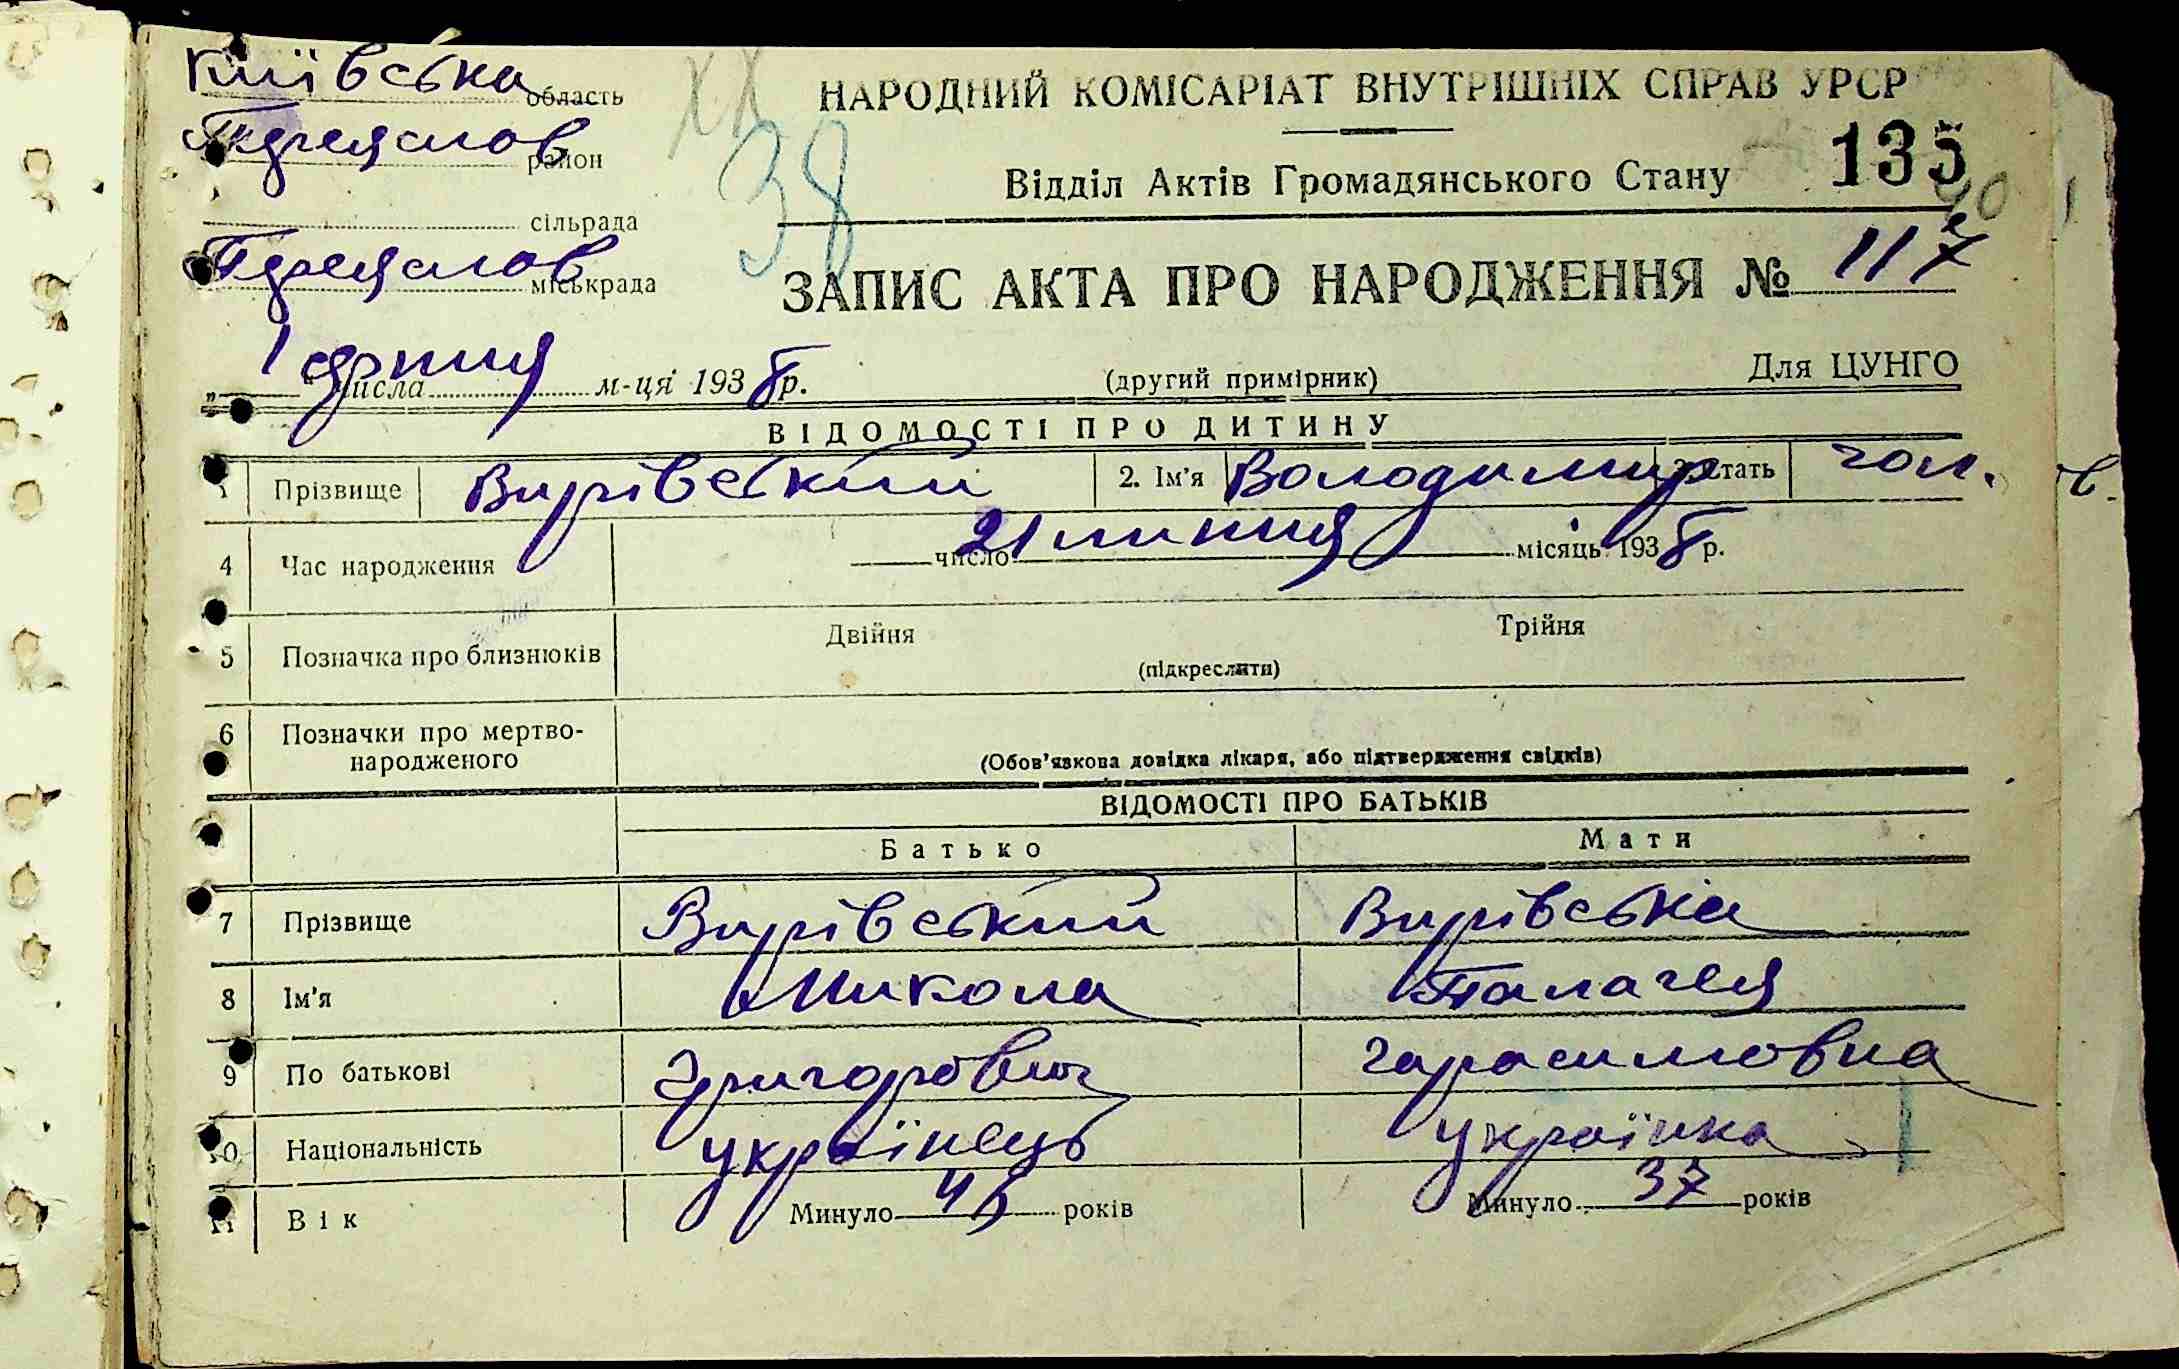 Київська область
район
сільрада
міськрада
НАРОДНИЙ КОМІСАРІАТ ВНУТРІШНІХ СПРАВ УРСР
38
135
Відділ Актів Громадянського Стану
ЗАПИС АКТА ПРО НАРОДЖЕННЯ № 117
„ 1 " числа серпня м-ця 1938 р.
(другий примірник)
Для ЦУНГО
ВІДОМОСТІ ПРО ДИТИНУ
1 Прізвище Вирівський 2. Ім'я Володимир 3. Стать чол.
4 Час народження 21 число липня місяць 1938 р.
5 Позначка про близнюків Двійня Трійня
(підкреслити)
6 Позначки про мертво-
народженого
(Обов'язкова довідка лікаря, або підтвердження свідків)
ВІДОМОСТІ ПРО БАТЬКІВ
Батько Мати
7 Прізвище Вирівський Вирівська
8 Ім'я Микола Палагея
9 По батькові Григорович Гарасимовна
10 Національність українець українка
11 Вік Минуло 45 років Минуло 37 років